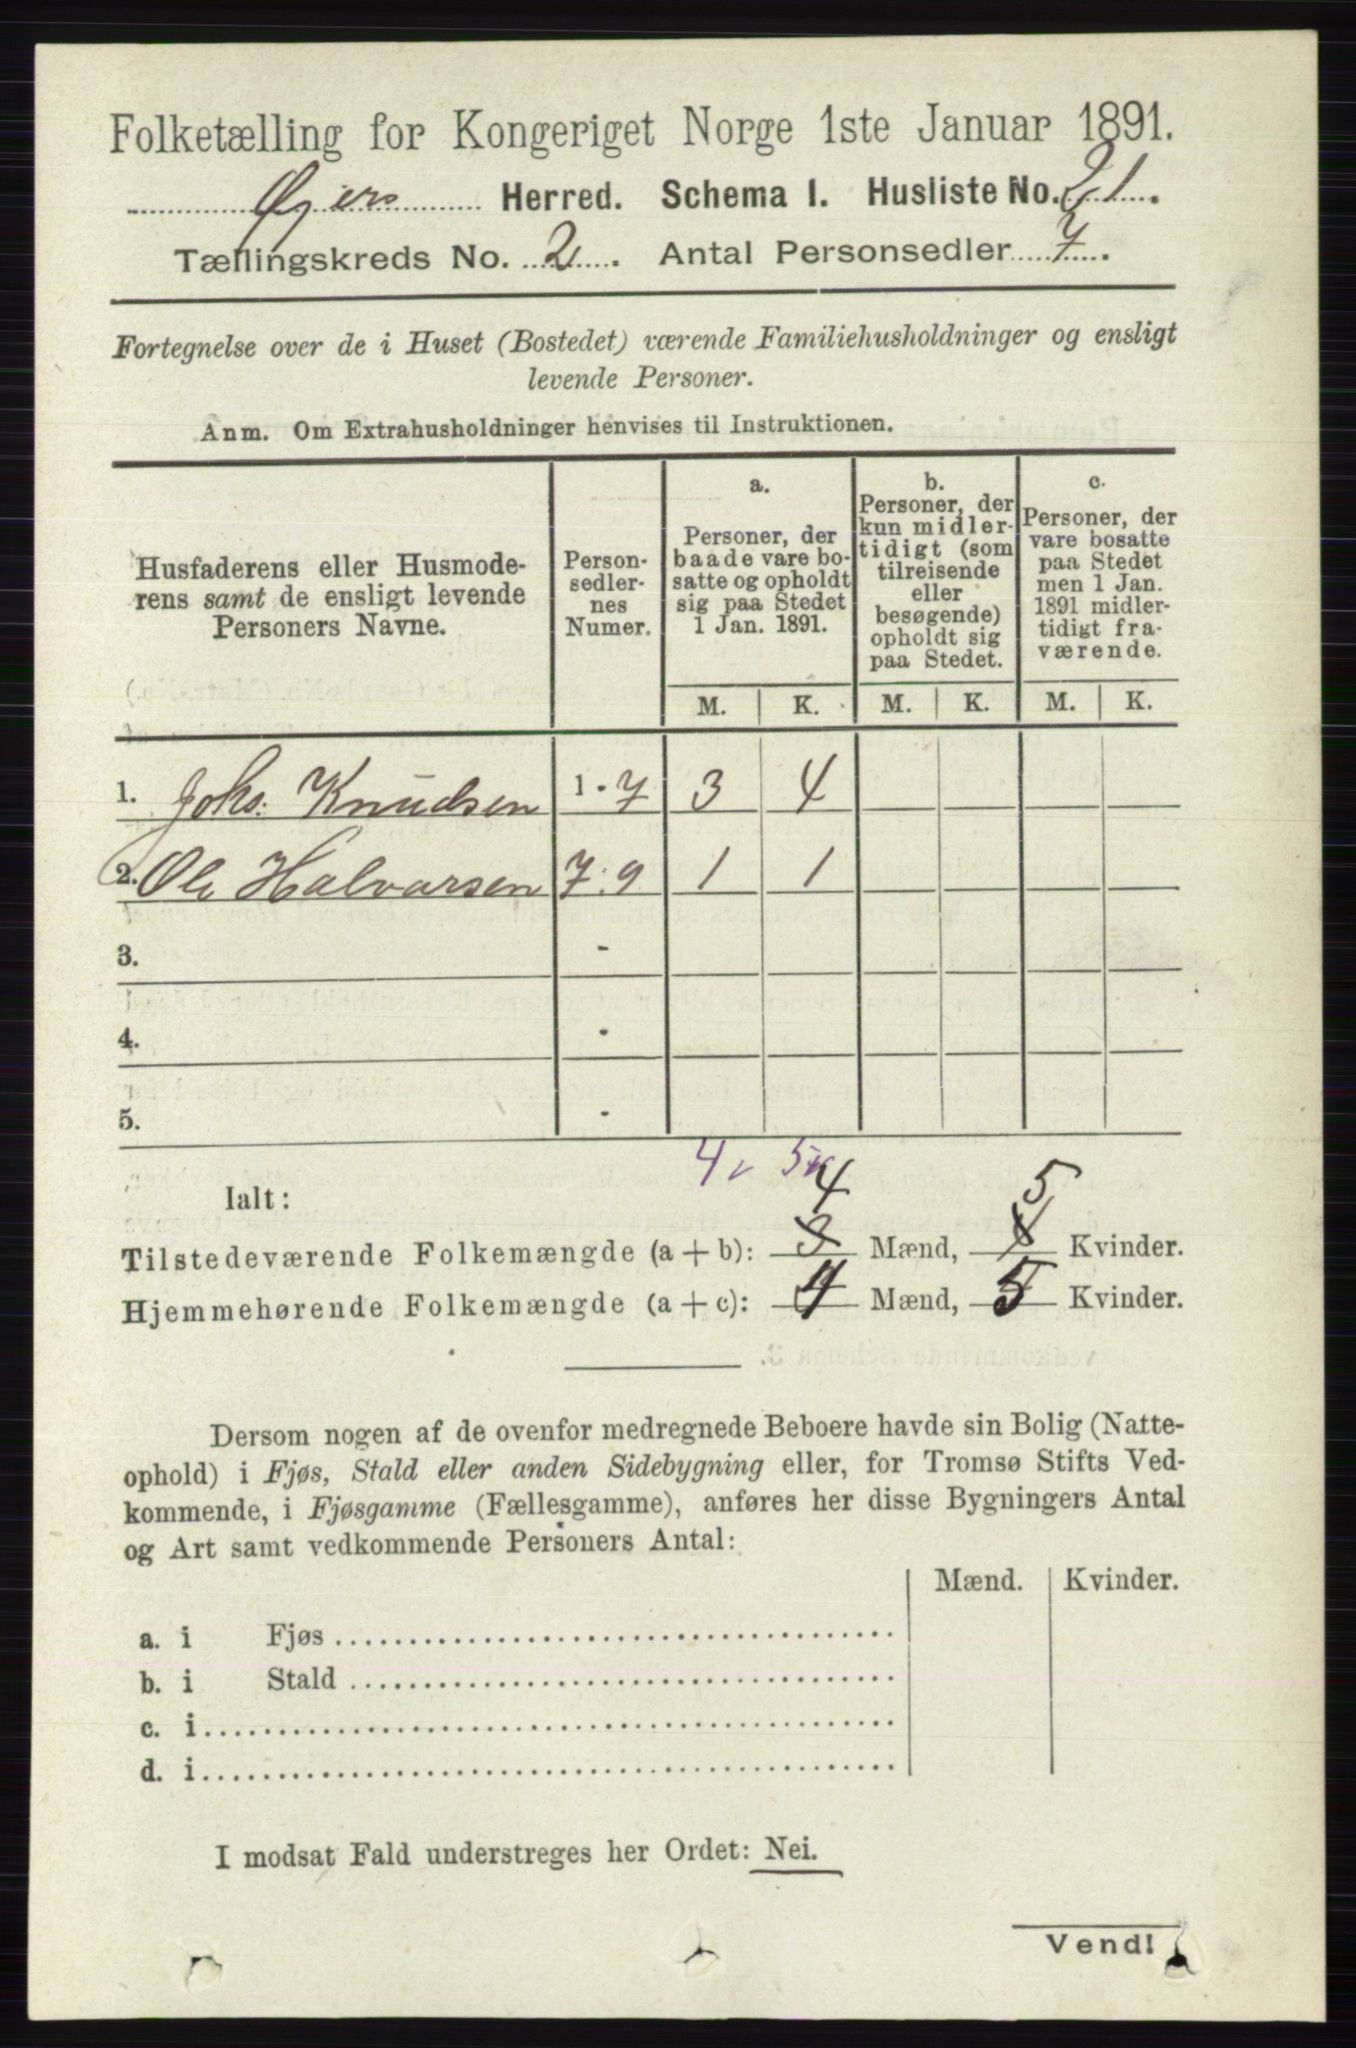 Folketælling for Kongeriget Norge 1ste Januar 1891.
Øjers Herred. Schema I. Husliste No. 21.
Tællingskreds No. 2. Antal Personsedler 7.
Fortegnelse over de i Huset (Bostedet) værende Familiehusholdninger og ensligt
levende Personer.
Anm. Om Extrahusholdninger henvises til Instruktionen.
Husfaderens eller Husmode-
rens samt de ensligt levende
Personers Navne.
Person-
sedler-
nes
Numer.
a.
Personer, der
baade vare bo-
satte og opholdt
sig paa Stedet
1 Jan. 1891.
b.
Personer, der
kun midler-
tidigt (som
tilreisende
eller
besøgende)
opholdt sig
paa Stedet.
c.
Personer, der
vare bosatte
paa Stedet
men 1 Jan.
1891 midler-
tidigt fra-
værende.
M. K. M. K. M. K.
1. Johs. Knudsen 1 - 7 3 4
2. Ole Halvorsen 7 - 9 1 1
3. -
4. -
5. -
4 5
4 5
Ialt:
Tilstedeværende Folkemængde (a + b): 3 Mænd, Kvinder.
Hjemmehørende Folkemængde (a + c): 4 Mænd, 5 Kvinder.
Dersom nogen af de ovenfor medregnede Beboere havde sin Bolig (Natte-
ophold) i Fjøs, Stald eller anden Sidebygning eller, for Tromsø Stifts Ved-
kommende, i Fjøsgamme (Fællesgamme), anføres her disse Bygningers Antal
og Art samt vedkommende Personers Antal:
Mænd. Kvinder.
a. i Fjøs
b. i Stald
c. i
d. i
I modsat Fald understreges her Ordet: Nei.
Vend!